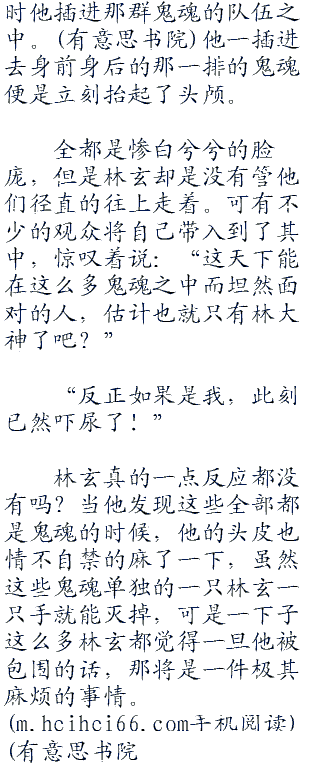 时他插进那群鬼魂的队伍之
中。(有意思书院)他一插进
去身前身后的那一排的鬼魂
便是立刻抬起了头颅。
全都是惨白兮兮的脸
庞，但是林玄却是没有管他
们径直的往上走着。可有不
少的观众将自己带入到了其
中，惊叹着说：“这天下能
在这么多鬼魂之中而坦然面
对的人，估计也就只有林大
神了吧？”
“反正如果是我，此刻
已然吓尿了！”
林玄真的一点反应都没
有吗？当他发现这些全部都
是鬼魂的时候，他的头皮也
情不自禁的麻了一下，虽然
这些鬼魂单独的一只林玄一
只手就能灭掉，可是一下子
这么多林玄都觉得一旦他被
包围的话，那将是一件极其
麻烦的事情。
(m.hcihci66.com手机阅读)
(有意思书院